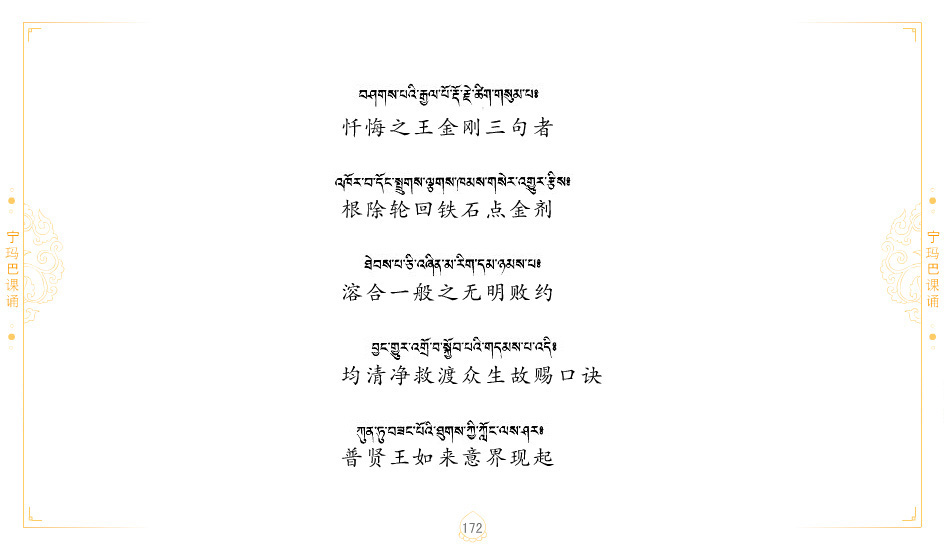 བཤགས་པའི་རྒྱལ་པོ་རྡོ་རྗེ་ཚིག་གསུམ་པ༔
忏悔之王金刚三句者
འཁོར་བ་དོང་སྤྲུགས་ལྕགས་ཁམས་གསེར་འགྱུར་རྩིས༔
根除轮回铁石点金剂
ཐེབས་པ་ཅི་འཞིན་མ་རིག་དམ་ཉམས་པ༔
溶合一般之无明败约
བྱང་གྱུར་འགྲོ་བ་སྐྱོབ་པའི་གདམས་པ་འདི༔
均清净救渡众生故赐口诀
ཀུན་ཏུ་བཟང་པོའི་ཐུགས་ཀྱི་ཀློང་ལས་ཤར༔
普贤王如来意界现起
宁玛巴课诵
宁玛巴课诵
172